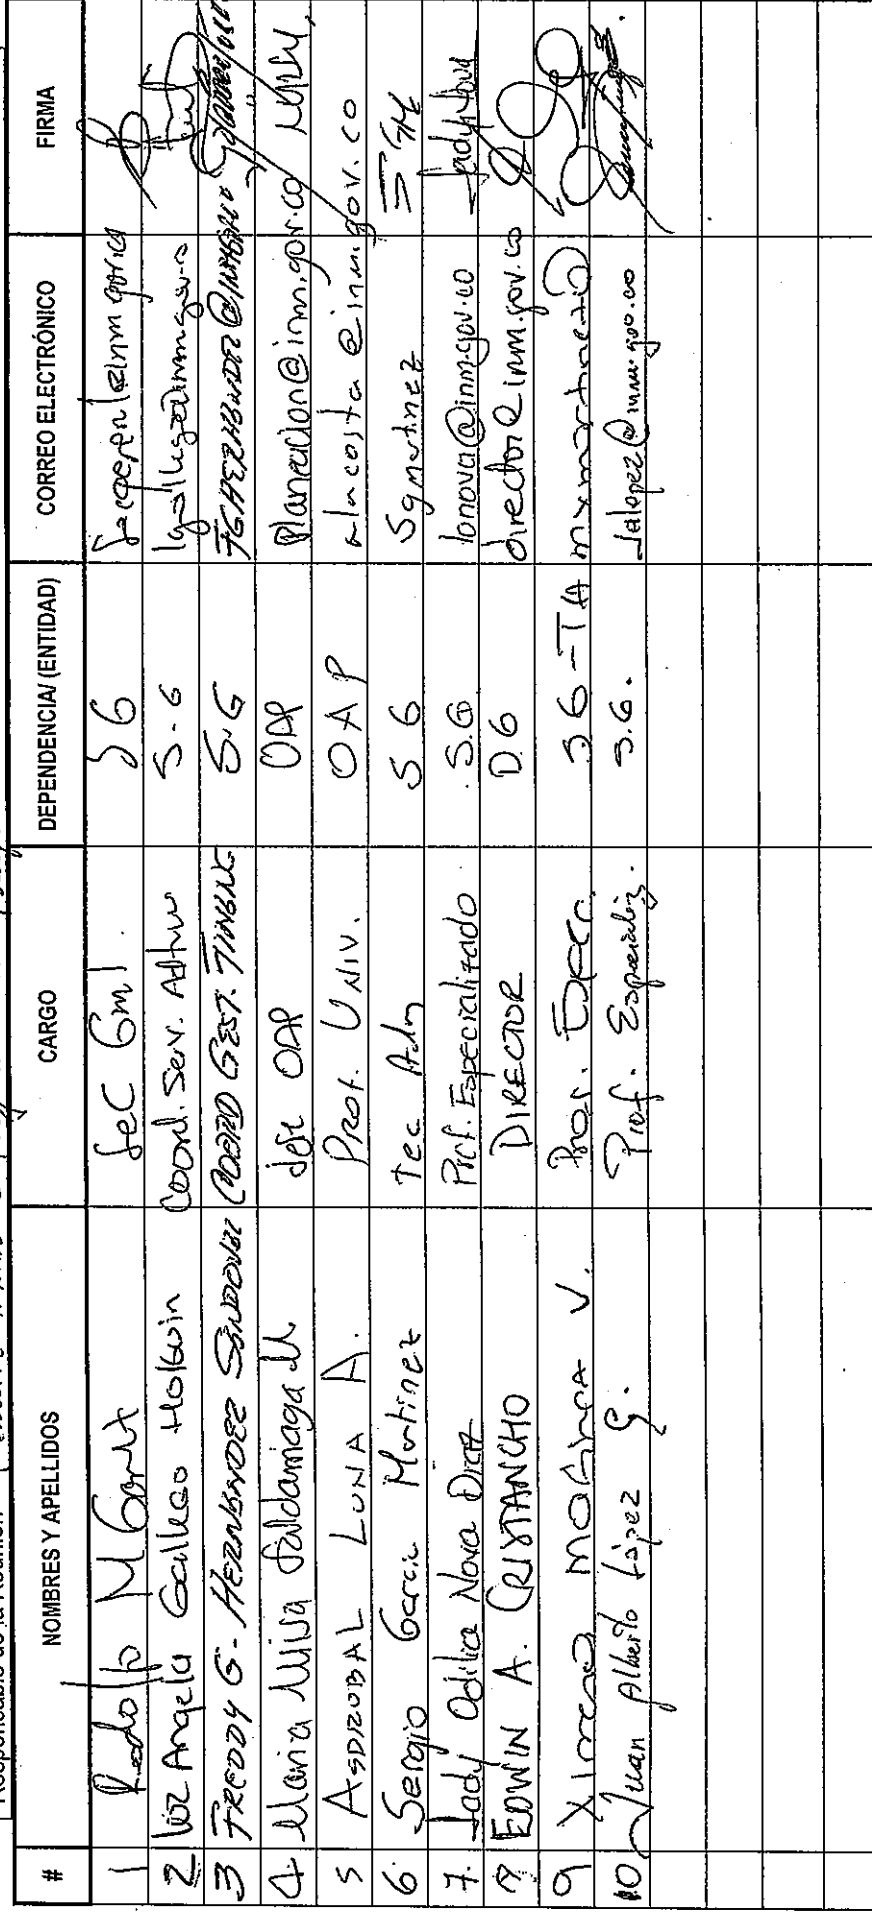 Responsable de la Reunión
# NOMBRES Y APELLIDOS CARGO DEPENDENCIA/ (ENTIDAD) CORREO ELECTRÓNICO FIRMA
1 Rodolfo M Sec Gral. SG
2 Luz Angela Gallego Holguin Coord. Serv. Admvo S-G
3 FREDDY G. HERNANDEZ SANDOVAL COORD GEST. S.G
4 Maria Luisa Saldarriaga M Jefe OAP OAP planeacion@inm.gov.co
5 ASDRUBAL LUNA A. Prof. Univ. OAP alacosta@inm.gov.co
6. Sergio Garcia Martinez Tec Adm SG Sgmartinez
7. Lady Odilia Nova Diaz Prof. Especializado S.G lonova@inm.gov.co Lady Nova
8 EDWIN A. CRISTANCHO DIRECTOR DG director@inm.gov.co
9 Ximena Molina V. Prof. SG-TH
10 Juan Alberto López G. Prof. Especializ. S.G. jalopez@inm.gov.co